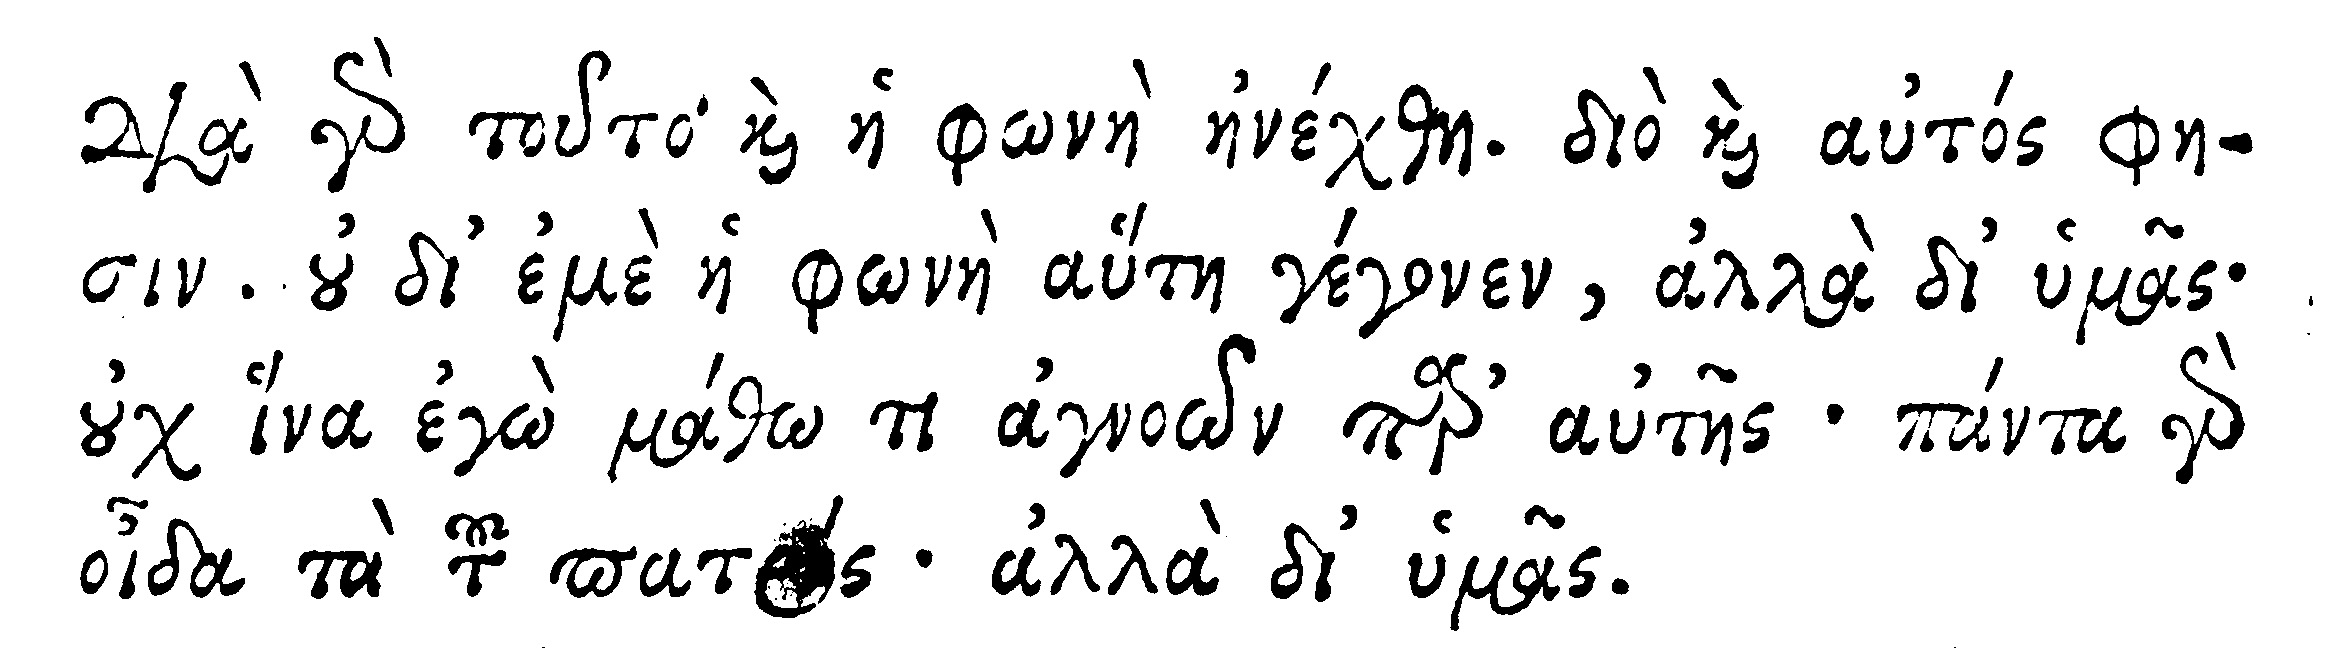 Διὰ γὰρ τοῦτο καὶ ἡ φωνὴ ἠνέχθη. διὸ καὶ αὐτός φη-
σιν. οὐ δι' ἐμὲ ἡ φωνὴ αὕτη γέγονεν, ἀλλὰ δι' ὑμᾶς·
οὐχ ἵνα ἐγὼ μάθω τι ἀγνοῶν παρ' αὐτῆς· πάντα γὰρ
οἶδα τὰ τοῦ πατρός· ἀλλὰ δι' ὑμᾶς.